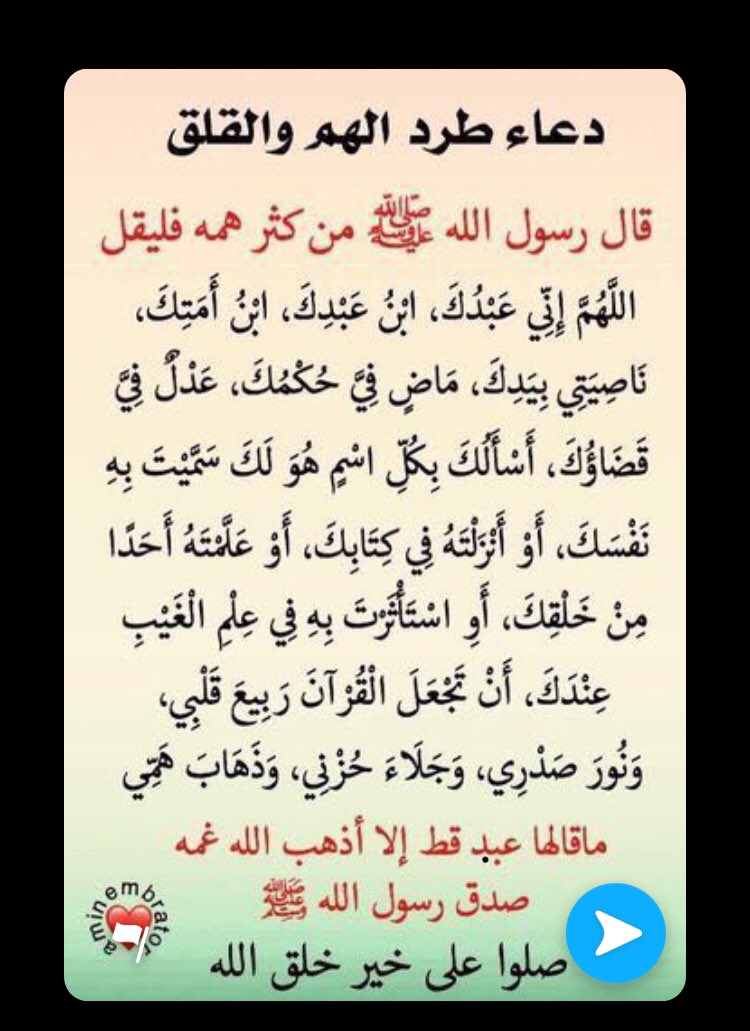 دعاء طرد الهم والقلق
قال رسول الله ﷺ من كثر همه فليقل
اللَّهُمَّ إِنِّي عَبْدُكَ، ابْنُ عَبْدِكَ، ابْنُ أَمَتِكَ،
نَاصِيَتِي بِيَدِكَ، مَاضٍ فِيَّ حُكْمُكَ، عَدْلٌ فِيَّ
قَضَاؤُكَ، أَسْأَلُكَ بِكُلِّ اسْمٍ هُوَ لَكَ سَمَّيْتَ بِهِ
نَفْسَكَ، أَوْ أَنْزَلْتَهُ فِي كِتَابِكَ، أَوْ عَلَّمْتَهُ أَحَدًا
مِنْ خَلْقِكَ، أَوِ اسْتَأْثَرْتَ بِهِ فِي عِلْمِ الْغَيْبِ
عِنْدَكَ، أَنْ تَجْعَلَ الْقُرْآنَ رَبِيعَ قَلْبِي،
وَنُورَ صَدْرِي، وَجَلَاءَ حُزْنِي، وَذَهَابَ هَمِّي
ماقالها عبد قط إلا أذهب الله غمه
صدق رسول الله ﷺ
صلوا على خير خلق الله
aminembrator